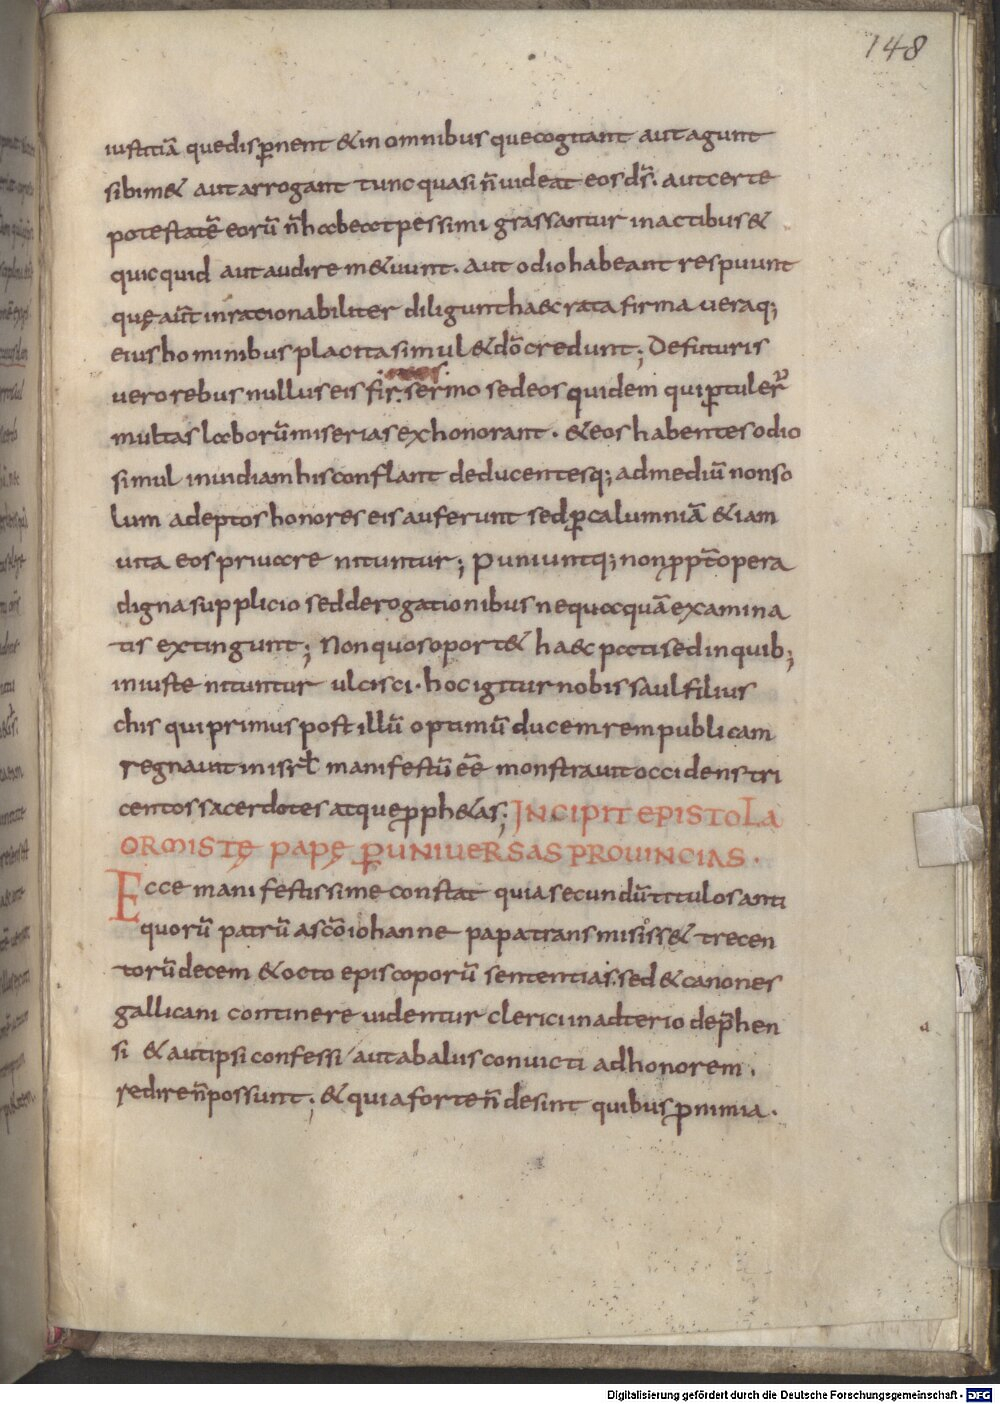 148
iustitiā quedispnent &in omnibus quecogitant aut agunt
sibim& aut arrogant tunc quasi n̄ uideat eos ds̄. aut certe
potestatē eorū n̄ habeat pessimi grassantur in actibus &
quicquid aut audire m&uunt. aut odio habeant respuunt
quę aūt inrationabiliter diligunt haec rata firma ueraq;
eius hominibus placita simul & dō credunt; De futuris
uero rebus nullus eis fit sermo sed eos quidem qui ptulerū
multas laborū miserias exhonorant. & eos habentes odio
simul inuidiam his conflant deducentesq; ad mediū non so
lum adeptos honores eis auferunt sed p calumniā & iam
uita eos priuare nituntur; Puniuntq; non pptē opera
digna supplicio sed derogationibus nequaquā examina
tis extingunt; Non quos oport& haec pati sed in quib;
iniuste nituntur ulcisci. hoc igitur nobis saul filius
chis qui primus post illū optimū ducem rem publicam
regnauit in isrl̄ manifestū eē monstrauit occidens tri
centos sacerdotes atque pph&as; INCIPIT EPISTOLA
ORMISTĘ PAPĘ P UNIUERSAS PROUINCIAS.
Ecce manifestissime constat quia secundū titulos anti
quorū patrū a scō iohanne papa transmisiss& trecen
torū decem & octo episcoporū sententias. sed & canones
gallicani continere uidentur clerici in adterio dephen
si & aut ipsi confessi aut ab alus conuicti ad honorem.
redire n̄ possunt; & quia forte n̄ desint quibus p nimia.
Digitalisierung gefördert durch die Deutsche Forschungsgemeinschaft - DFG